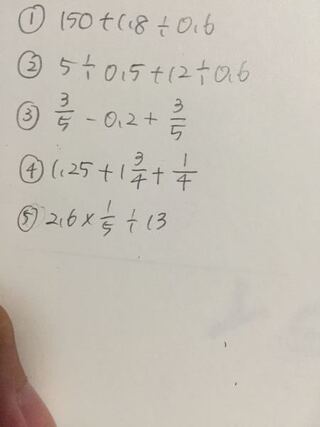 ① 150+1.8÷0.6
② 5÷0.5+12÷0.6
③ 3/5-0.2+3/5
④ 1.25+1 3/4+1/4
⑤ 2.6×1/5÷13